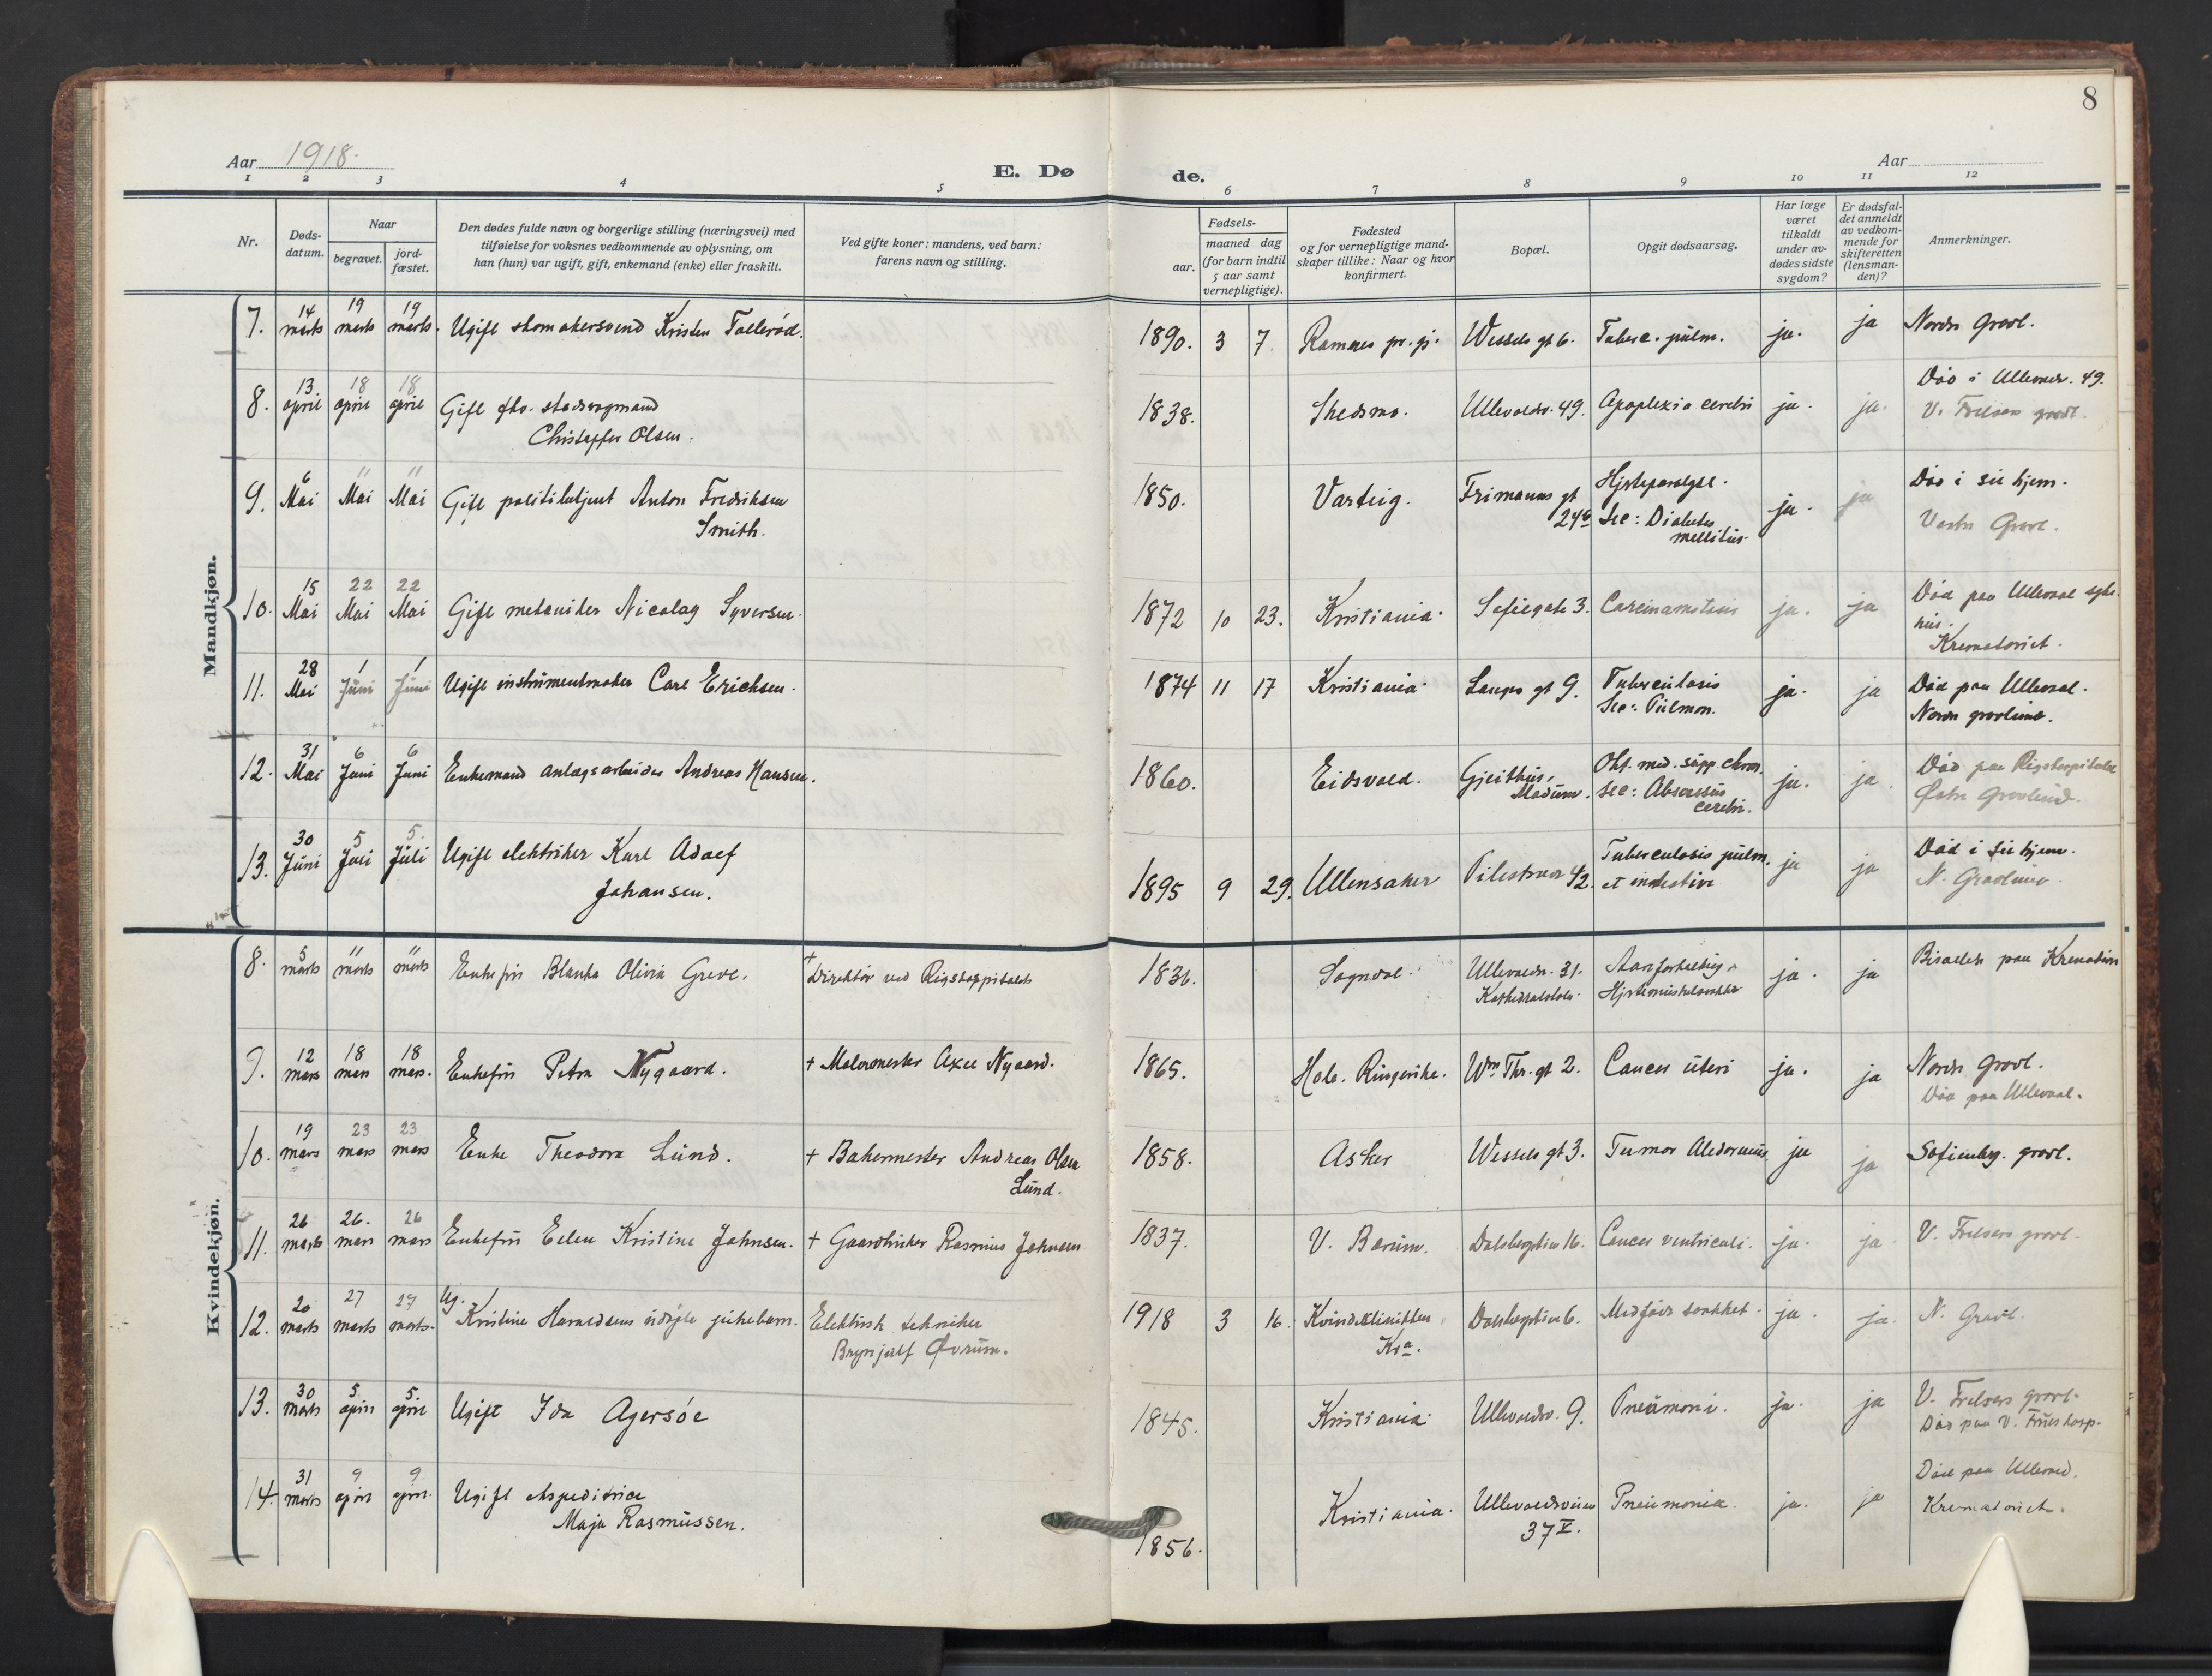 8
Aar 1918.
E. Dø
de.
Aar
1 2 3 4 5 6 7 8 9 10 11 12
Nr.
Døds-
datum.
Naar
begravet.
jord-
fæstet.
Den dødes fulde navn og borgerlige stilling (næringsvei) med
tilføielse for voksnes vedkommende av oplysning, om
han (hun) var ugift, gift, enkemand (enke) eller fraskilt.
Ved gifte koner: mandens, ved barn:
farens navn og stilling.
Fødsels-
aar.
maaned dag
(for barn indtil
5 aar samt
vernepligtige).
Fødested
og for vernepligtige mand-
skaper tillike: Naar og hvor
konfirmert.
Bopæl.
Opgit dødsaarsag.
Har læge
været
tilkaldt
under av-
dødes sidste
sygdom?
Er dødsfal-
det anmeldt
av vedkom-
mende for
skifteretten
(lensman-
den)?
Anmerkninger.
Mandkjøn.
7. 14 marts 19 marts 19 marts. Ugift skomakersvend Kristen Tollerød. 1890. 3 7. pr. gj. Wessels gt 6. Tuberc. pulm. ja. ja Nordre Gravl.
8. 13. april 18 april 18 april Gift fhv. stadsvogmand
Christoffer Olsen.
1838. Skedsmo. Ullevoldsv. 49. Apoplexia cerebri ja. ja. Død i Ullevoldsv. 49.
V. Frelsers gravl.
9. 6 Mai 11 Mai 11 Mai Gift politibetjent Anton Fredriksen
Smith.
1850. Varteig. Frimanns gt
24b
Hjerteparalyse.
Sec: Diabetes
mellitus.
ja. ja Død i sit hjem.
Vestre Gravl.
10. 15 Mai 22 Mai 22 Mai Gift mekaniker Nicolay Syversen. 1872 10 23. Kristiania. Sofiegate 3. Carcinomatosis ja. ja Død paa Ullevaal syke-
hus.
Krematoriet.
11. 28 Mai 1 Juni 1 Juni Ugift instrumentmaker Carl Erichsen. 1874 11 17 Kristiania. Langes gt 9. Tuberculosis
Sec: Pulmon.
ja. ja Død paa Ullevaal.
Nordre gravlund.
12. 31 Mai 6 Juni 6 Juni Enkemand anlægsarbeider Andreas Hansen. 1860. Eidsvold. Gjeithus,
Modum.
Oht. med. supp. chron.
sec: Abscessus
cerebri.
ja. ja Død paa Rigshospitalet
Østre Gravlund.
13. 30 Juni 5 Juli 5. Juli Ugift elektriker Karl Adolf
Johansen.
1895 9 29. Ullensaker Pilestræde 42. Tuberculosis pulm.
et intestini
ja ja Død i sit hjem.
N. Gravlund.
Kvindekjøn.
8. 5 marts 11 marts 11 marts Enkefru Blanka Olivia Greve. † Direktør ved Rigshospitalet 1836. Sogndal. Ullevoldsv. 31.
Kathedralskole.
Hjertemuskelsvækkelse
ja. ja Bisættes paa Krematoriet
9. 12 mars 18 mars 18 mars. Enkefru Petra Nygaard. † Malermester Axel Nygaard. 1865. Hole. Ringerike. Wm Thr. gt 2. Cancer uteri ja. ja Nordre Gravl.
Død paa Ullevaal.
10. 19 mars 23 mars 23 mars Enke Theodora Lund. † Bakermester Andreas Olsen
Lund.
1858. Asker Wessels gt 3. Tumor Abdominis ja ja Sofienberg. gravl.
11. 26 marts 26. mars 26 mars Enkefru Ellen Kristine Johnsen. † Gaardbruker Rasmus Johnsen 1837. V. Bærum. Dalsbergstien 16. Cancer ventriculi. ja. ja V. Frelsers gravl.
12. 20 marts 27 marts 27 marts. Ug. Kristine Haraldsens udøpte pikebarn. Elektrisk tekniker
Brynjulf Øvrum.
1918 3 16. Kvindeklinikken
Kra.
Dalsbergstien 6. Medfødt svakhet. ja. ja. N. Gravl.
13. 30 marts 5 april 5. april Ugift Ida Agersøe 1845. Kristiania. Ullevoldsv. 9. Pneumoni. ja. ja V. Frelsers gravl.
Død paa V. Frues hosp.
14. 31 marts 9 april 9 april. Ugift ekspeditrice
Maja Rasmussen.
1856. Kristiania. Ullevoldsveien
37 V.
Pneumonia. ja. ja Død paa Ullevaal.
Krematoriet.